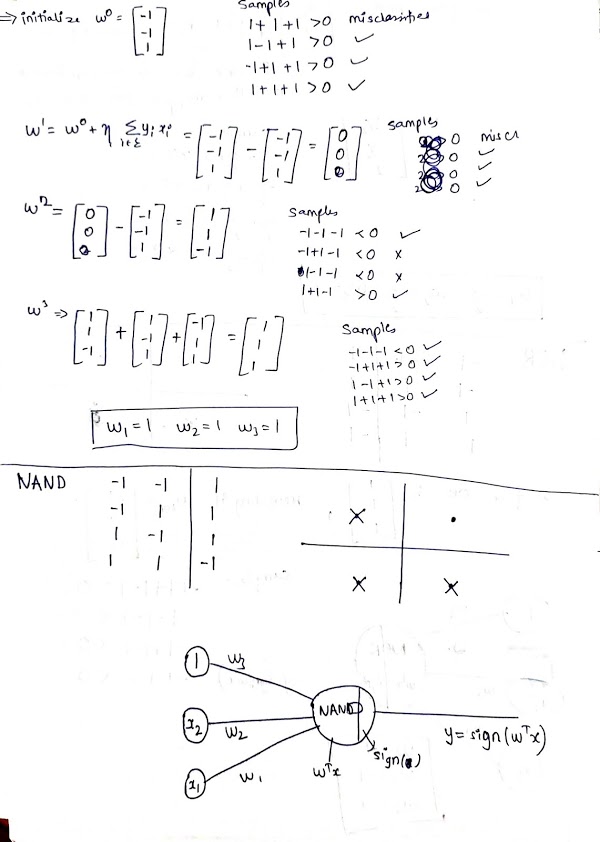 ⇒ initialize w⁰ = [-1 -1 1]
Samples
1+1+1 >0 misclassifies
1-1+1 >0 ✓
-1+1+1 >0 ✓
1+1+1 >0 ✓
w¹ = w⁰ + η Σ yᵢ xᵢ = [-1 -1 1] - [-1 -1 1] = [0 0 0]
i∈ε
Samples
0 miscl
0 ✓
0 ✓
0 ✓
w² = [0 0 0] - [-1 -1 1] = [1 1 -1]
Samples
-1-1-1 <0 ✓
-1+1-1 <0 x
1-1-1 <0 x
1+1-1 >0 ✓
w³ ⇒ [1 1 -1] + [1 -1 1] + [-1 1 1] = [1 1 1]
Samples
-1-1-1 <0 ✓
-1+1+1 >0 ✓
1-1+1 >0 ✓
1+1+1 >0 ✓
w₁ = 1 w₂ = 1 w₃ = 1
NAND -1 -1 1
-1 1 1
1 -1 1
1 1 -1
1 w₃
x₂ w₂
x₁ w₁
NAND
wᵀx
sign(·)
y = sign(wᵀx)